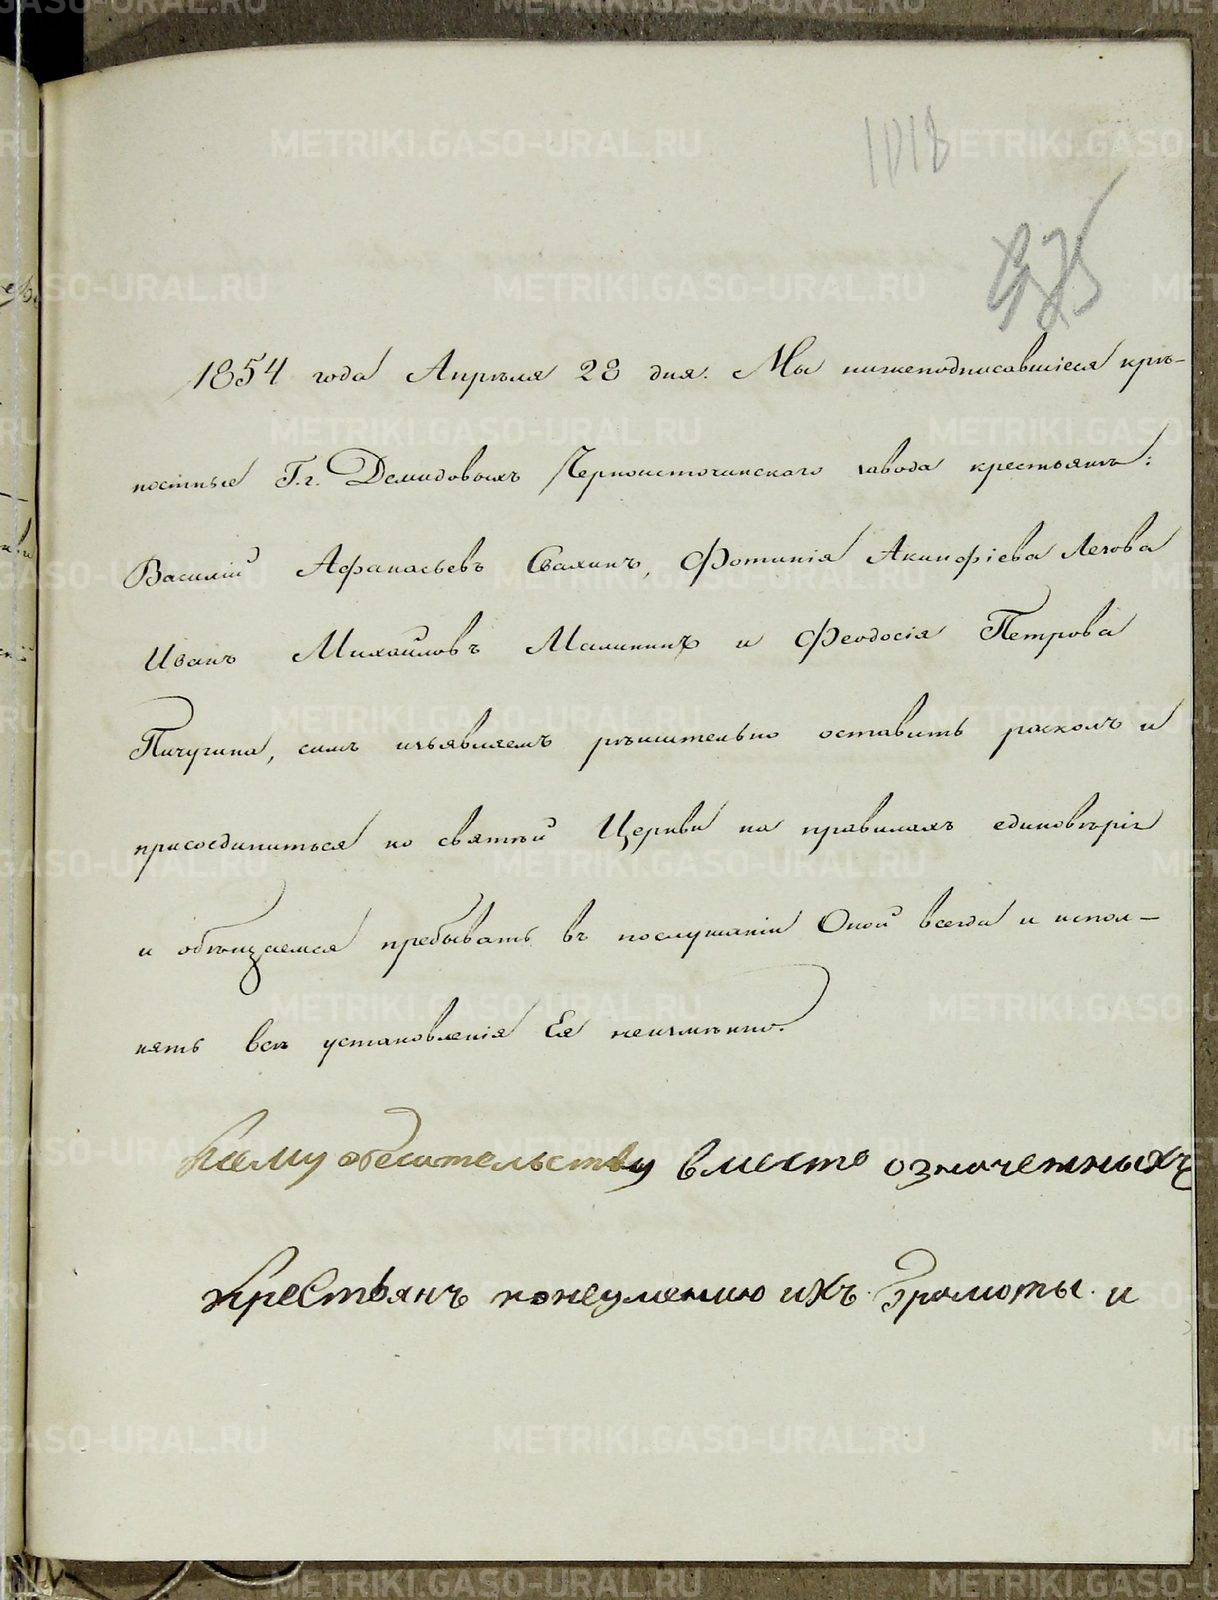 1018
1854 года Апрѣля 28 дня. Мы нижеподписавшіеся крѣ-
постные Г.г. Демидовыхъ Черноисточинскаго завода крестьяне:
Василій Афанасьевъ Свахинъ, Фотинія Акинфіева Легова
Иванъ Михайловъ Малининъ и Феодосія Петрова
Пичугина, симъ изъявляемъ рѣшительно оставить расколъ и
присоединиться ко святѣй Церкви на правилахъ единовѣрія
и обѣщаемся пребывать въ послушаніи Оной всегда и испол-
нять всѣ установленія Ея неизмѣнно.
Ксему обесательству вместо означенныхъ
Крестьянъ понеумению ихъ Грамоты и